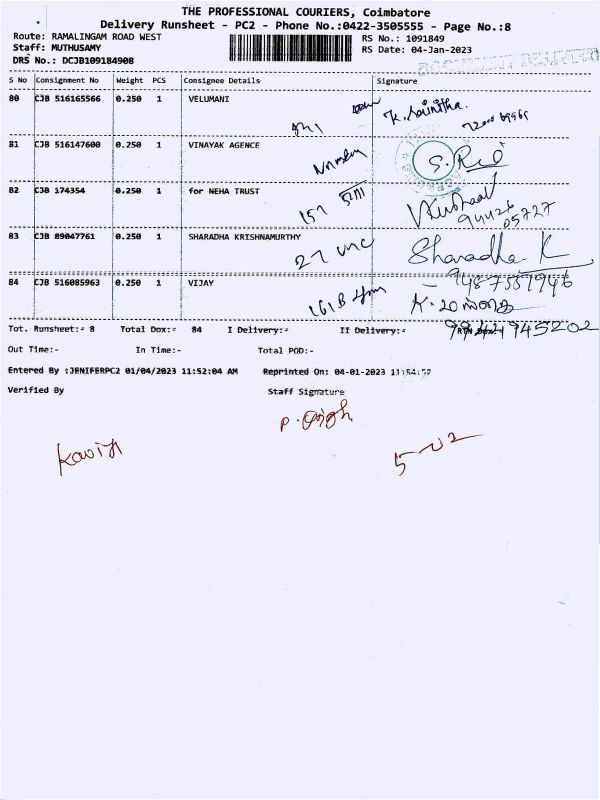 THE PROFESSIONAL COURIERS, Coimbatore
Delivery Runsheet - PC2 - Phone No.:0422-3505555 - Page No.:8
Route: RAMALINGAM ROAD WEST RS No.: 1091849
Staff: MUTHUSAMY RS Date: 04-Jan-2023
DRS No.: DCJB109184908
S No Consignment No Weight PCS Consignee Details Signature
80 CJB 516165566 0.250 1 VELUMANI K. Sainitha.
81 CJB 516147600 0.250 1 VINAYAK AGENCE
82 CJB 174354 0.250 1 for NEHA TRUST 157
94426
05727
83 CJB 89047761 0.250 1 SHARADHA KRISHNAMURTHY 27 Sharadha K
84 CJB 516085963 0.250 1 VIJAY
Tot. Runsheet:- 8 Total Dox:- 84 I Delivery:- II Delivery:-
Out Time:- In Time:- Total POD:-
Entered By :JENIFERPC2 01/04/2023 11:52:04 AM Reprinted On: 04-01-2023 11:54:59
Verified By Staff Signature